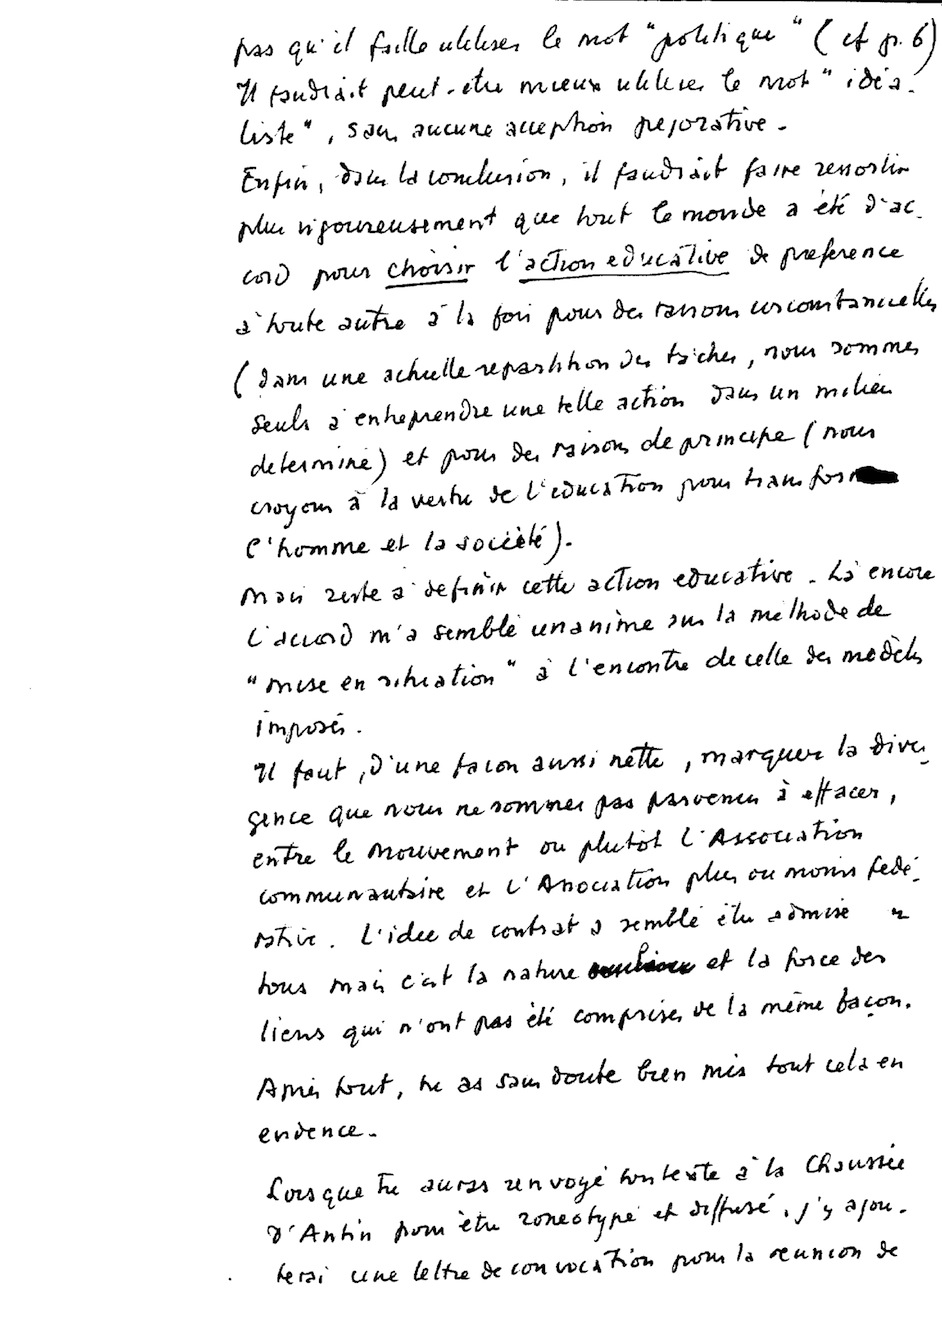 pas qu'il faille utiliser le mot "politique" (cf p. 6)
Il faudrait peut-être mieux utiliser le mot "idéa-
liste", sans aucune acception péjorative.
Enfin, dans la conclusion, il faudrait faire ressortir
plus vigoureusement que tout le monde a été d'ac-
cord pour choisir l'action educative de preference
à toute autre à la fois pour des raisons circonstancielles
(dans une actuelle repartition des tâches, nous sommes
seuls à entreprendre une telle action dans un milieu
determiné) et pour des raisons de principe (nous
croyons à la vertu de l'education pour transformer
l'homme et la société).
Mais reste à definir cette action educative. Là encore
l'accord m'a semblé unanime sur la methode de
"mise en situation" à l'encontre de celle des modèles
imposés.
Il faut, d'une facon aussi nette, marquer la diver-
gence que nous ne sommes pas parvenus à effacer,
entre le Mouvement ou plutôt l'Association
communautaire et l'Association plus ou moins fédé-
rative. L'idee de contrat a semblé être admise
tous mais c'est la nature et la force des
liens qui n'ont pas été comprises de la même façon.
Après tout, tu as sans doute bien mis tout cela en
evidence.
Lorsque tu auras renvoyé ton texte à la Chaussée
d'Antin pour être roneotypé et diffusé, j'y ajou-
terai une lettre de convocation pour la reunion de